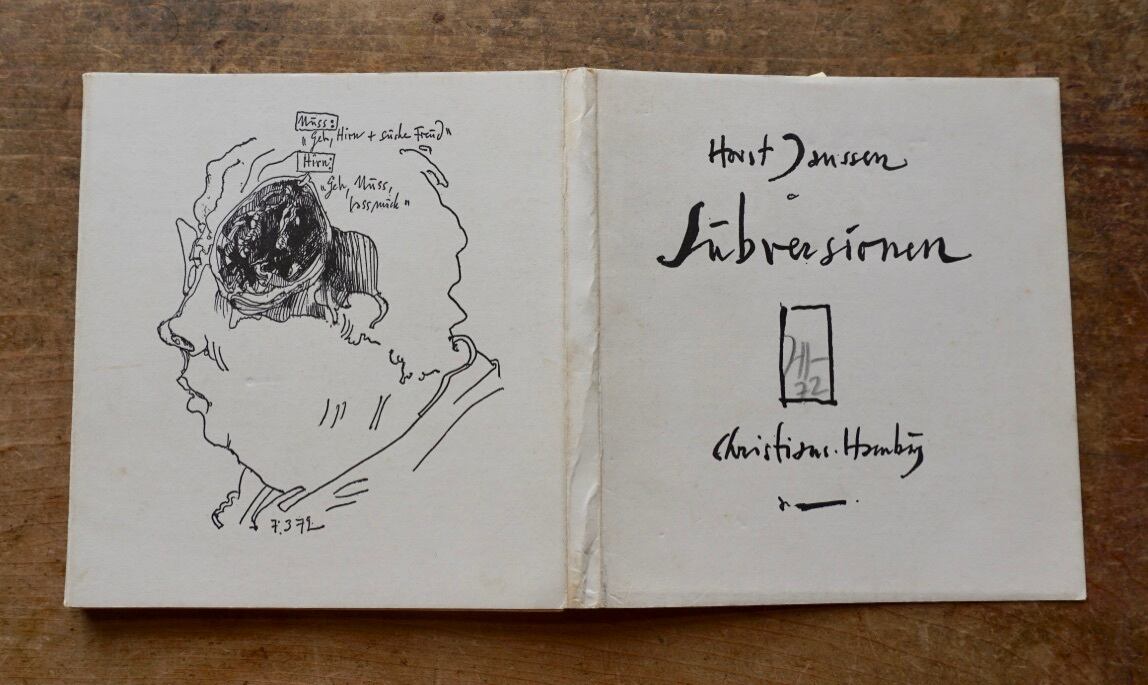 Nuss:
"Geh, Hirn + suche Freud"
Hirn:
"Geh, Nuss,
lass mich"
7.3 72
Horst Janssen
Subversionen
72
Christians. Hamburg